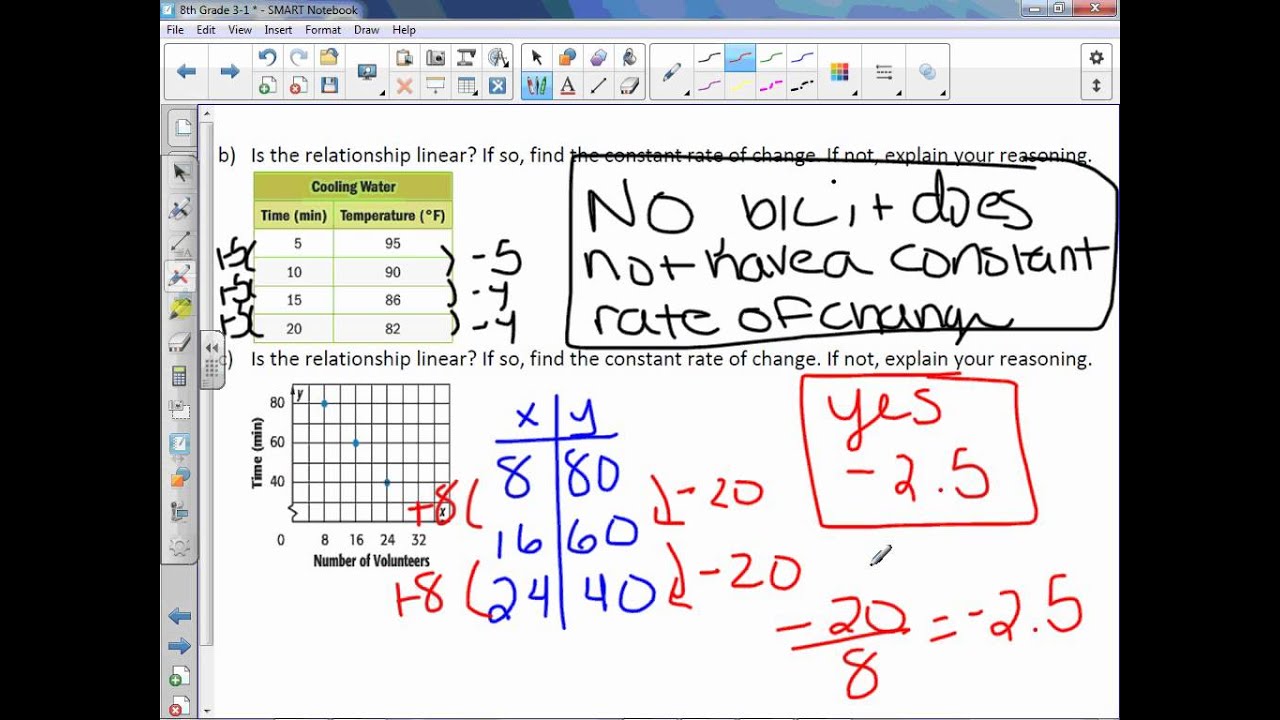 8th Grade 3-1 * - SMART Notebook
File Edit View Insert Format Draw Help
b) Is the relationship linear? If so, find the constant rate of change. If not, explain your reasoning.
Cooling Water
Time (min) Temperature (°F)
5 95
10 90
15 86
20 82
+5
+5
+5
-5
-4
-4
NO b/c it does
not have a constant
rate of change
c) Is the relationship linear? If so, find the constant rate of change. If not, explain your reasoning.
y
80
60
40
Time (min)
x
0 8 16 24 32
Number of Volunteers
x y
8 80
16 60
24 40
+8
+8
-20
-20
yes
-2.5
-20
8
= -2.5